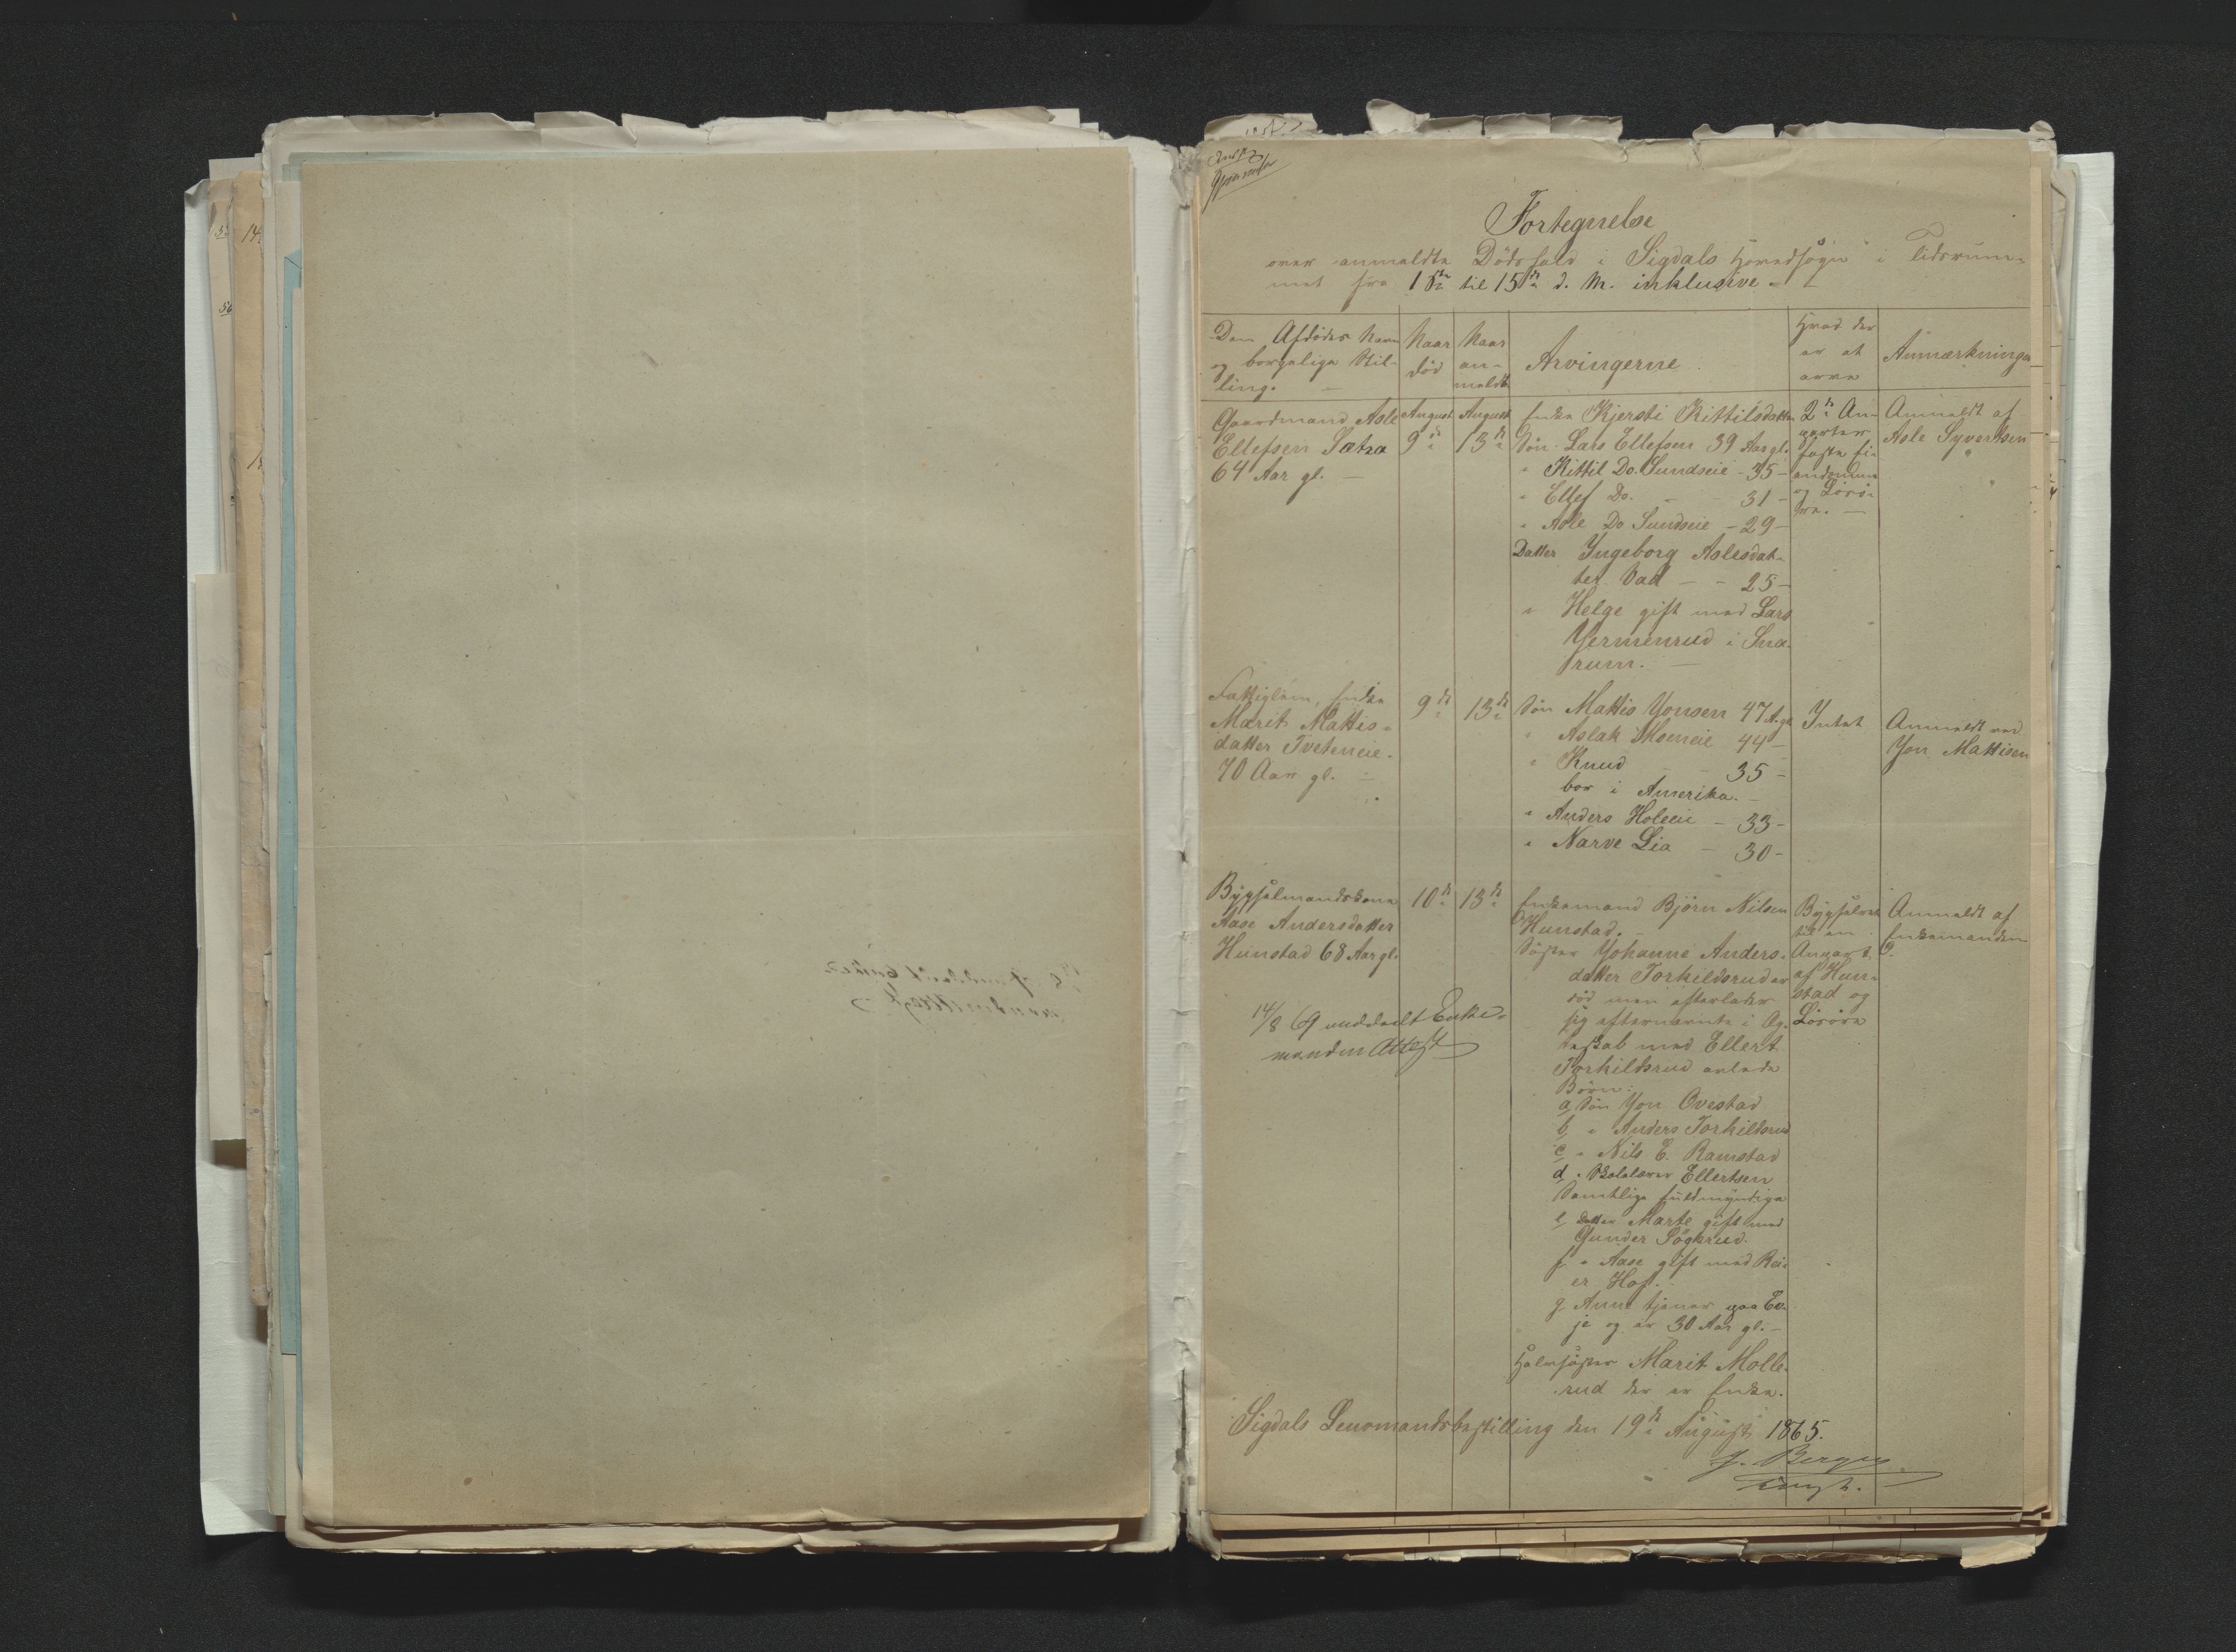 Fortegnelse
over anmeldte Dødsfald i Sigdals Hovedsogn i Tidsrum-
met fra 1ste til 15de d. M. inklusive
Den Afdødes Navn
og borgelige Stil-
ling.
Naar
død
Naar
an-
meldt
Arvingerne
Hvad der
er at
arve
Anmærkninger
Gaardmand Asle
Ellefsen Sætra
64 Aar gl.
August
9de
August
13de
Enke Kjersti Kittilsdatter
Søn Lars Ellefsen 39 Aar gl.
" Kittil Do. Sundseie - 35 -
" Ellef Do. - - 31 -
" Asle Do Sundseie - 29 -
Datter Yngeborg Aslesdat-
ter Vad - - 25 -
" Helge gift med Lars
Yermenrud i Sna-
rum.
2de An-
parter
faste Ei-
endomme
og Løsø-
re.
Anmeldt af
Asle Syvertsen
Fattiglem, Enke
Marit Mattis-
datter Tveteneie.
70 Aar gl.
9de
13de
Søn Mattis Yonsen 47 A. gl
" Aslak Moeneie 44 -
" Knud - - 35 -
bor i Amerika.
" Anders Holeeie - 33 -
" Narve Lia - 30 -
Yntet
Anmeldt ved
Yon Mattisen
Bygselmandskone
Aase Andersdatter
Hunstad 68 Aar gl.
10de
13de
Enkemand Bjørn Nilsen
Hunstad.
Søster Yohanne Anders-
datter Torkildsrud er
død men efterlader
sig efternævnte i Æg-
teskab med Ellert
Torkildsrud avlede
Børn:
a, Søn Yon Ovestad
b, " Anders Torkildsrud
c, " Nils E. Ramstad
d, " Skolelærer Ellertsen
Samtlige fuldmyndige
e, Datter Marte gift med
Gunder Søgkrud.
f, " Aase gift med Rei-
er Hof.
g, Anne tjener paa Ev-
je og er 30 Aar gl.
Halvsøster Marit Molle-
rud der er Enke.
Bygselret
til en
Anpart
af Hun-
stad og
Løsøre
Anmeldt af
Enkemanden
14/8 69 meddelt Enke-
manden Attest
Sigdals Lensmandsbestilling den 19de August 1865.
J. Bergus